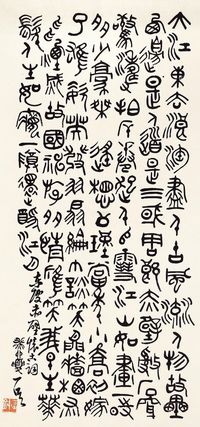 大江東去浪淘盡千古風流人物故壘
西邊人道是三國周郎赤壁亂
驚濤拍岸捲起千堆雪江山如畫一時
多少豪傑遙想公瑾當年小喬初嫁
了雄姿英發羽扇綸巾談笑
煙滅故國神遊多情應笑我早生華
髮人生如夢一尊還酹江月
東坡赤壁懷古詞